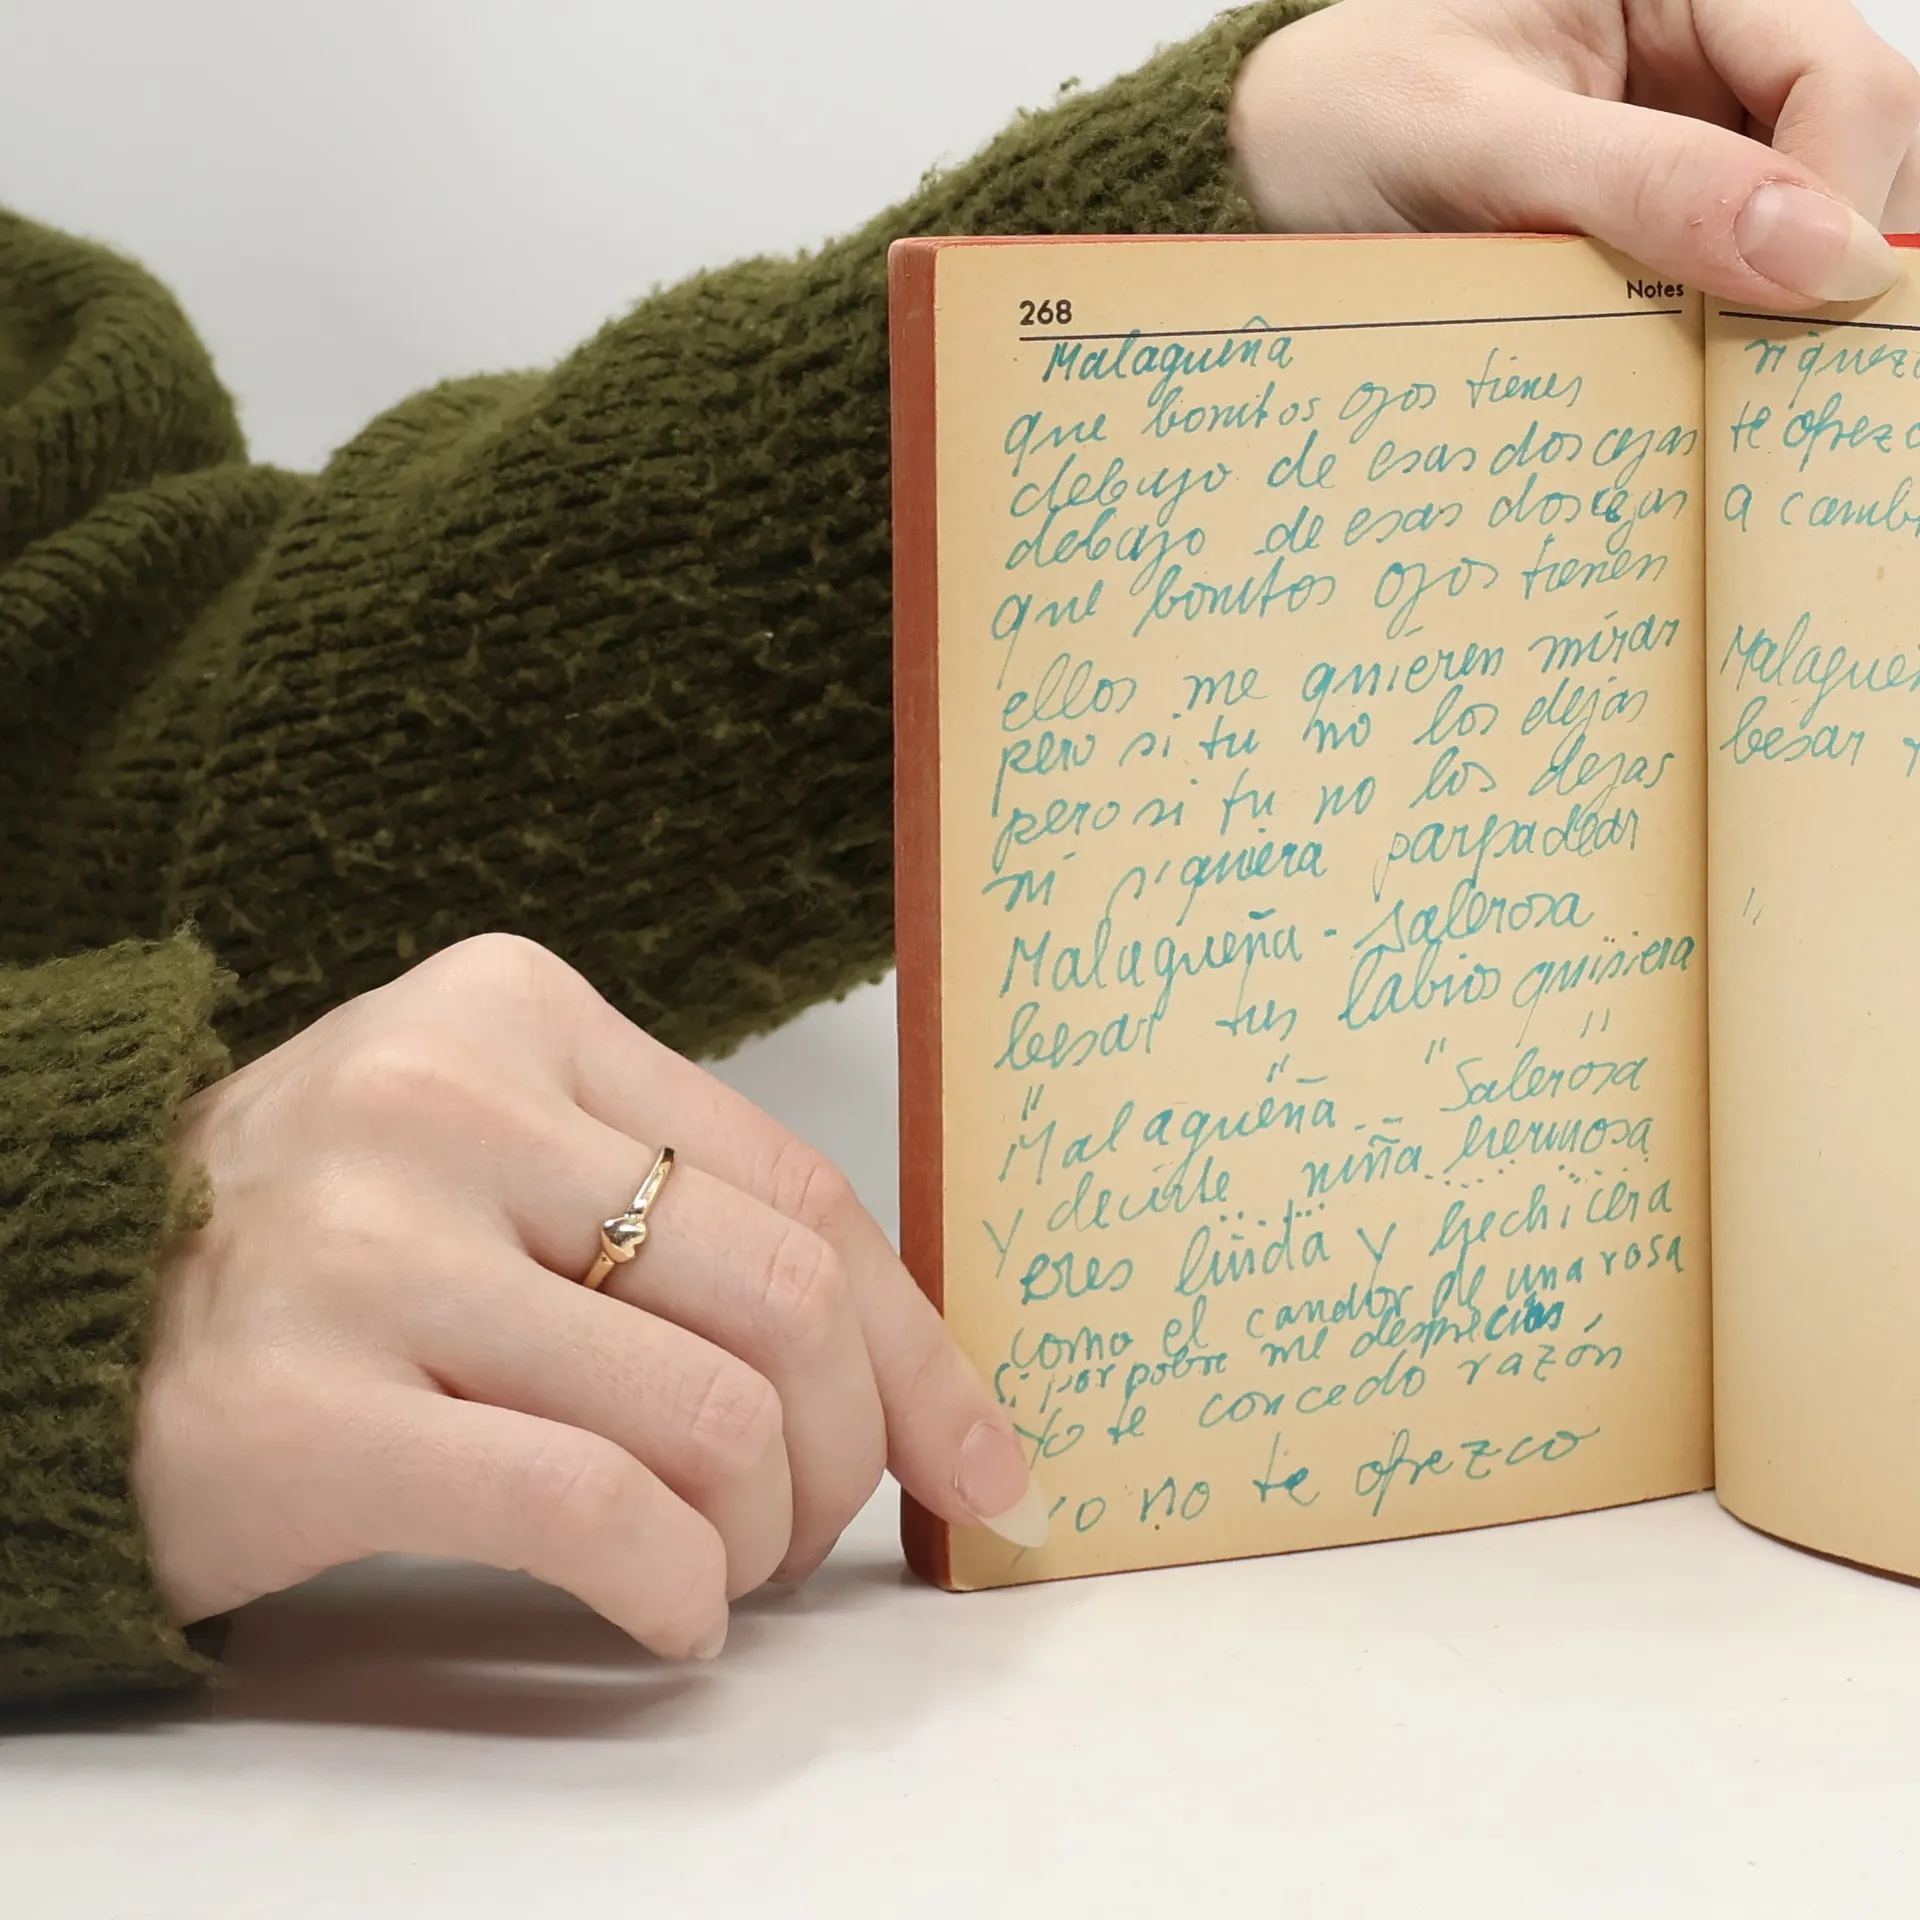 268
Notes
Malagueña
que bonitos ojos tienes
debajo de esas dos cejas
debajo de esas dos cejas
que bonitos ojos tienes
ellos me quieren mirar
pero si tu no los dejas
pero si tu no los dejas
ni siquiera parpadear
Malagueña - Salerosa
besar tus labios quisiera
" " " "
Malagueña -- Salerosa
y decirte niña hermosa
eres linda y hechicera
como el candor de una rosa
Si por pobre me desprecias
Yo te concedo razón
Yo no te ofrezco
riquez
te ofrezc
a camb
Malagueñ
besar
"